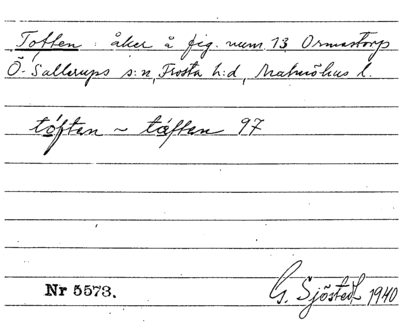 Toften : åker å fig. num 13 Ormastorp
Ö. Sallerups s:n, Frosta h:d, Malmöhus l.
tóften ~ tæften 97
Nr 5573.
G. Sjöstedt 1940